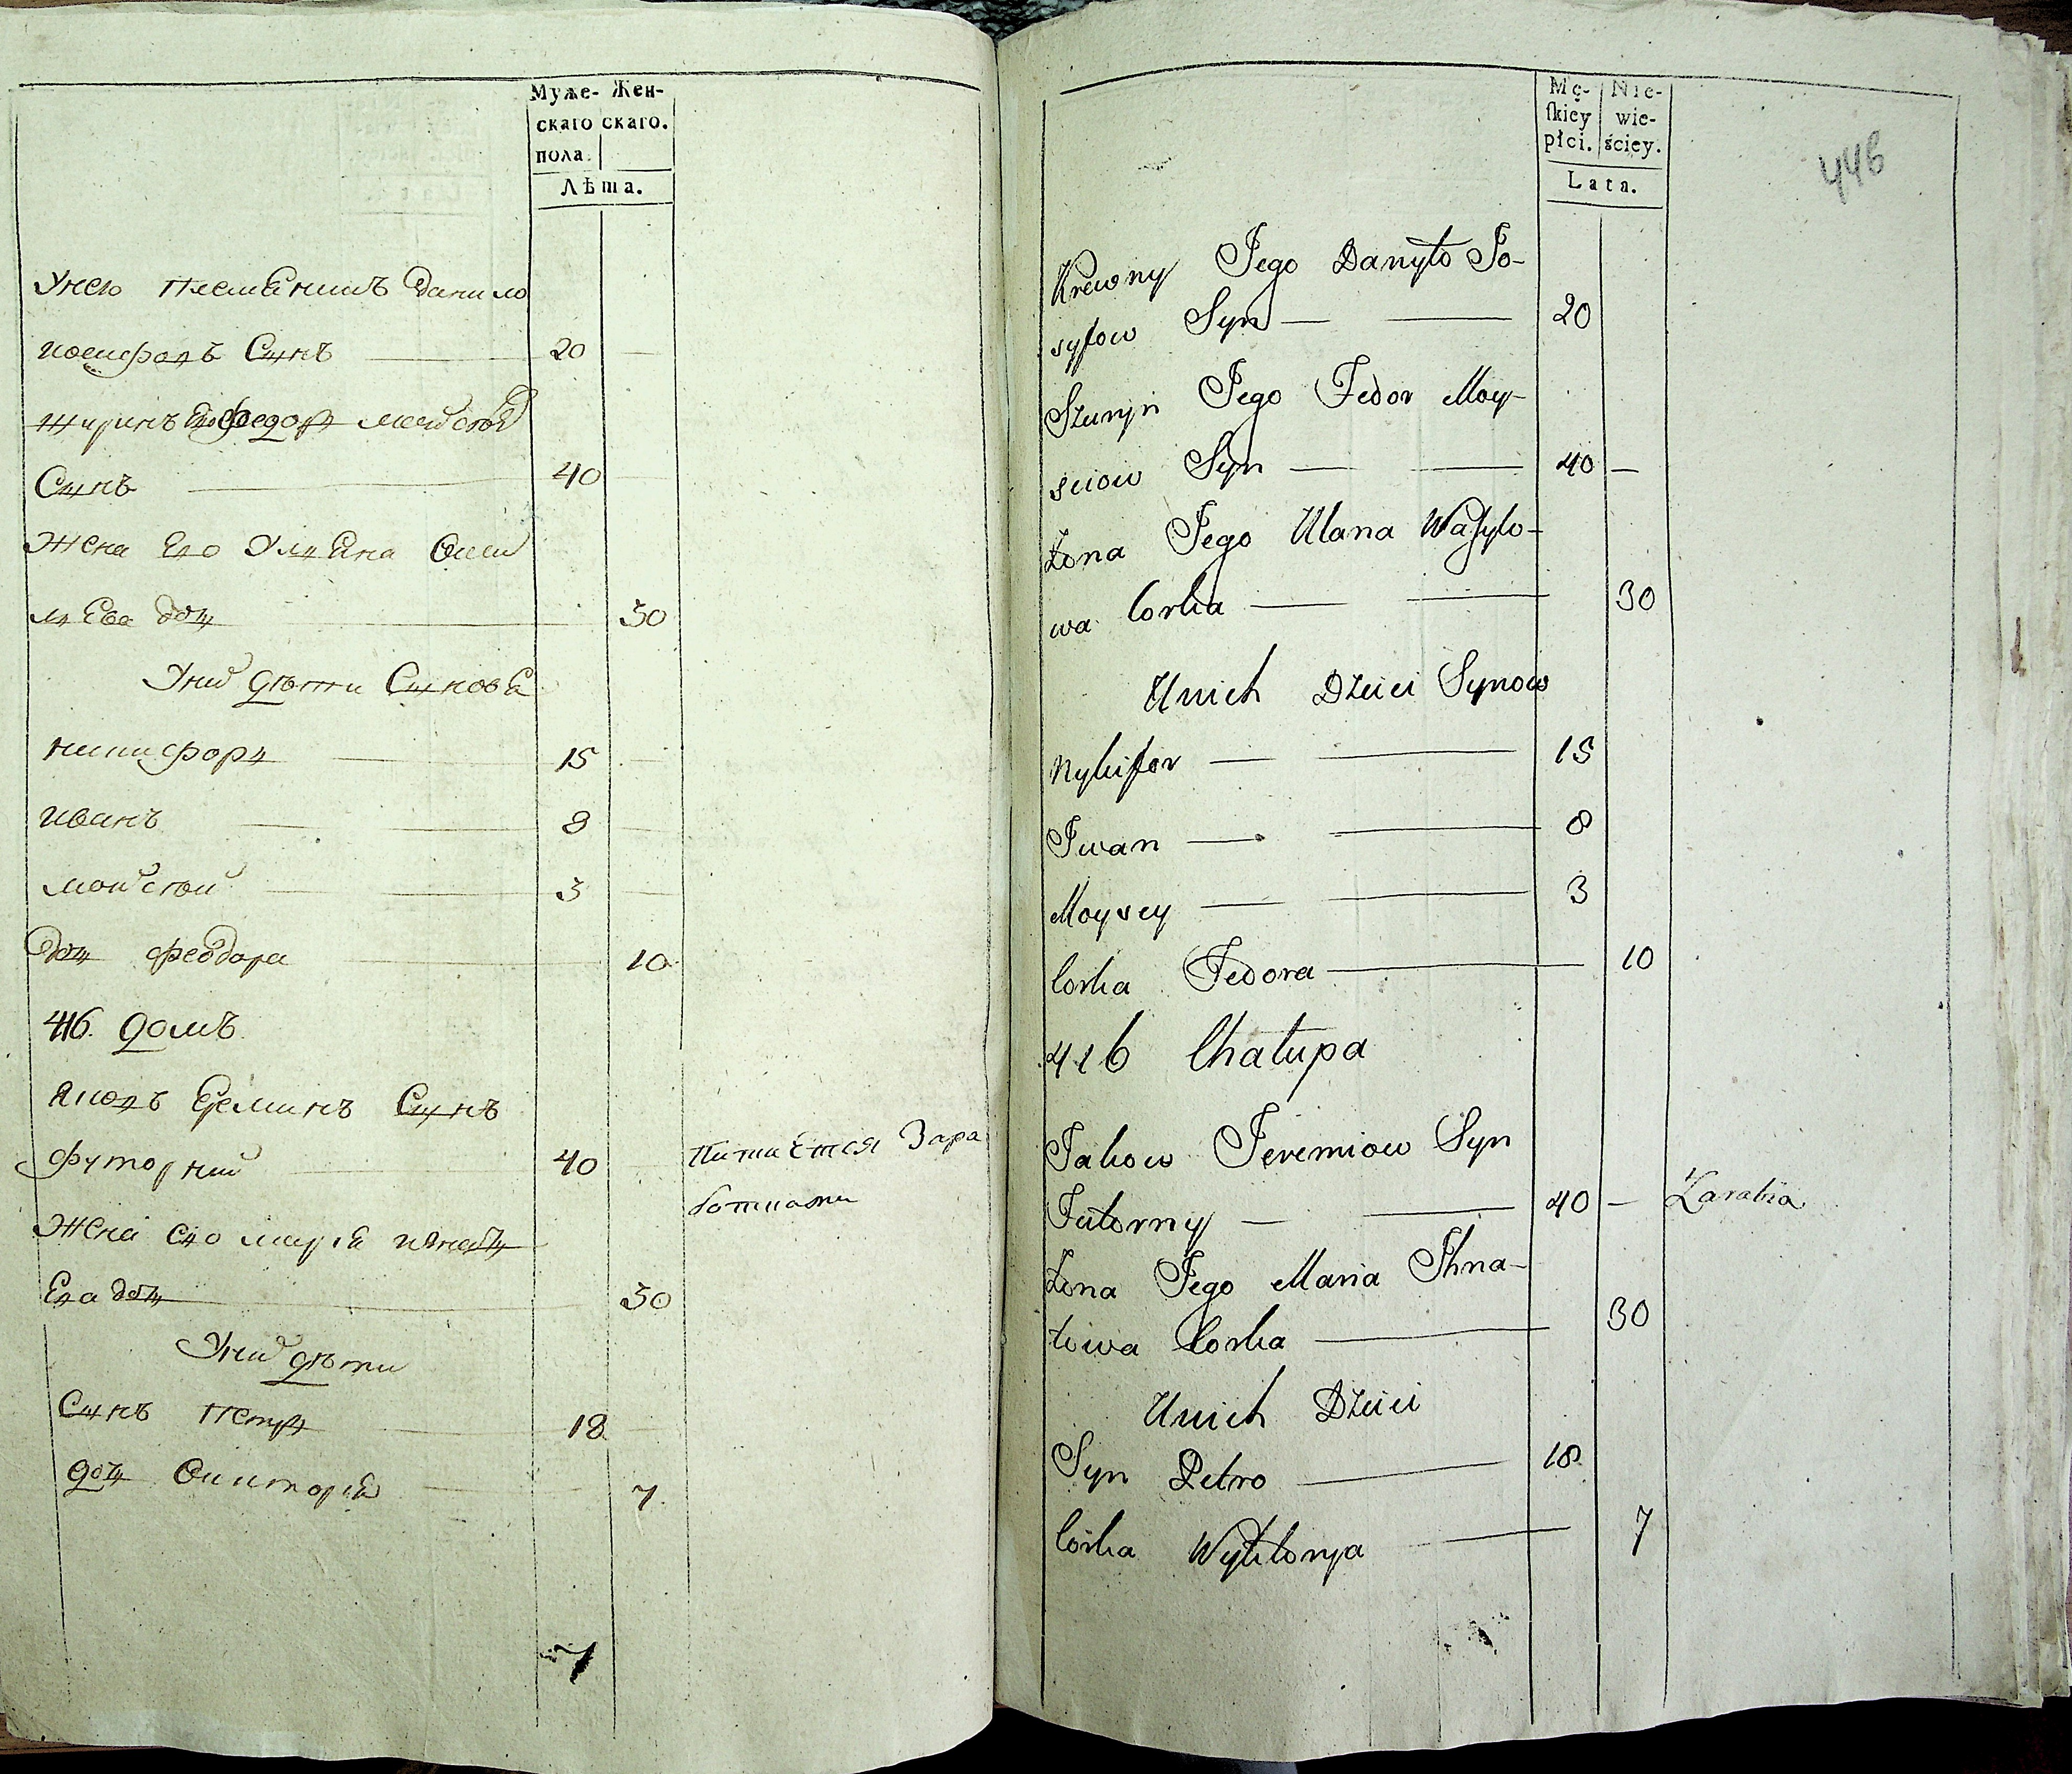 Муже- Жен-
скаго скаго.
пола.
Лѣта.
Унего племѣнникъ Данило
иосифовъ Сынъ 20
Шуринъ Его Федоръ мойсѣев
Сынъ 40
Жена Его Улияна
дочь 30
Уних дѣти Синовя
никифоръ 15
иванъ 8
мойсѣй 3
дочь феодора 10
416. домъ
яковъ Еремиинъ Сынъ
футорний 40 питается Зара
ботками
Жена Его мария игнать
Ева дочь 30
Уних дѣти
Сынъ петръ 18
дочь викторія 7
7
Mę- Nie-
ſkiey wie-
płci. ściey.
Lata.
446
Krewny Jego Danyło Jo-
syfow Syn 20
Szuryn Jego Fedor Moy-
siiow Syn 40
Żona Jego Ulana Waſylo-
wa Corka 30
Unich Dzieci Synow
Nykifor 15
Iwan 8
Moysey 3
Corka Fedora 10
416 Chałupa
Jakow Jeremiow Syn
Futorny 40 Zarabia
Żona Jego Maria Ihna-
towa Corka 30
Unich Dzieci
Syn Petro 18
Corka Wyktorya 7